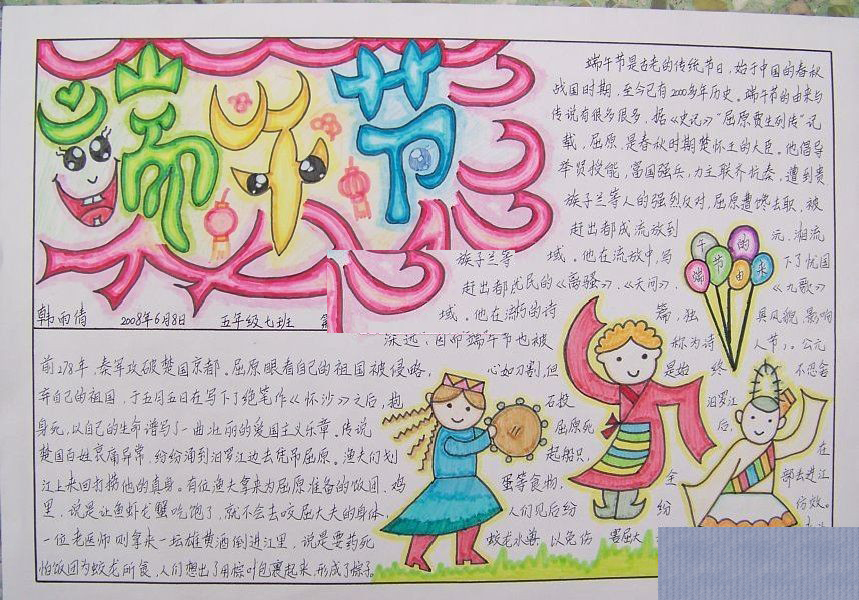 端午节
韩雨倩 2008年6月8日 五年级七班
端午节的由来
端午节是古老的传统节日，始于中国的春秋
战国时期，至今已有2000多年历史。端午节的由来与
传说有很多很多，据《史记》“屈原贾生列传”记
载，屈原，是春秋时期楚怀王的大臣。他倡导
举贤授能，富国强兵，力主联齐抗秦，遭到贵
族子兰等人的强烈反对，屈原遭馋去职，被
赶出都成流放到 元、湘流
族子兰等 域。他在流放中，写 下了忧国
赶出都 忧民的《离骚》、《天问》、 《九歌》
域。他在流放的诗 篇，独 具风貌，影响
深远，因而端午节也被 称为诗 人节）。公元
前278年，秦军攻破楚国京都。屈原眼看自己的祖国被侵略， 心如刀割，但 是始 终 不忍舍
弃自己的祖国，于五月五日在写下了绝笔作《怀沙》之后，抱 石投 汨罗江
身死，以自己的生命谱写了一曲壮丽的爱国主义乐章。传说 屈原死 后，
楚国百姓哀痛异常，纷纷涌到汨罗江边去凭吊屈原。渔夫们划 起船只， 在
江上来回打捞他的真身。有位渔夫拿来为屈原准备的饭团、鸡 蛋等食物， 全 部丢进江
里，说是让鱼虾龙蟹吃饱了，就不会去咬屈大夫的身体， 人们见后纷 纷 仿效。
一位老医师则拿来一坛雄黄酒倒进江里，说是要药死 蛟龙水兽，以免伤 害屈大
怕饭团为蛟龙所食，人们想出了用棕叶包裹起来，形成了棕子。